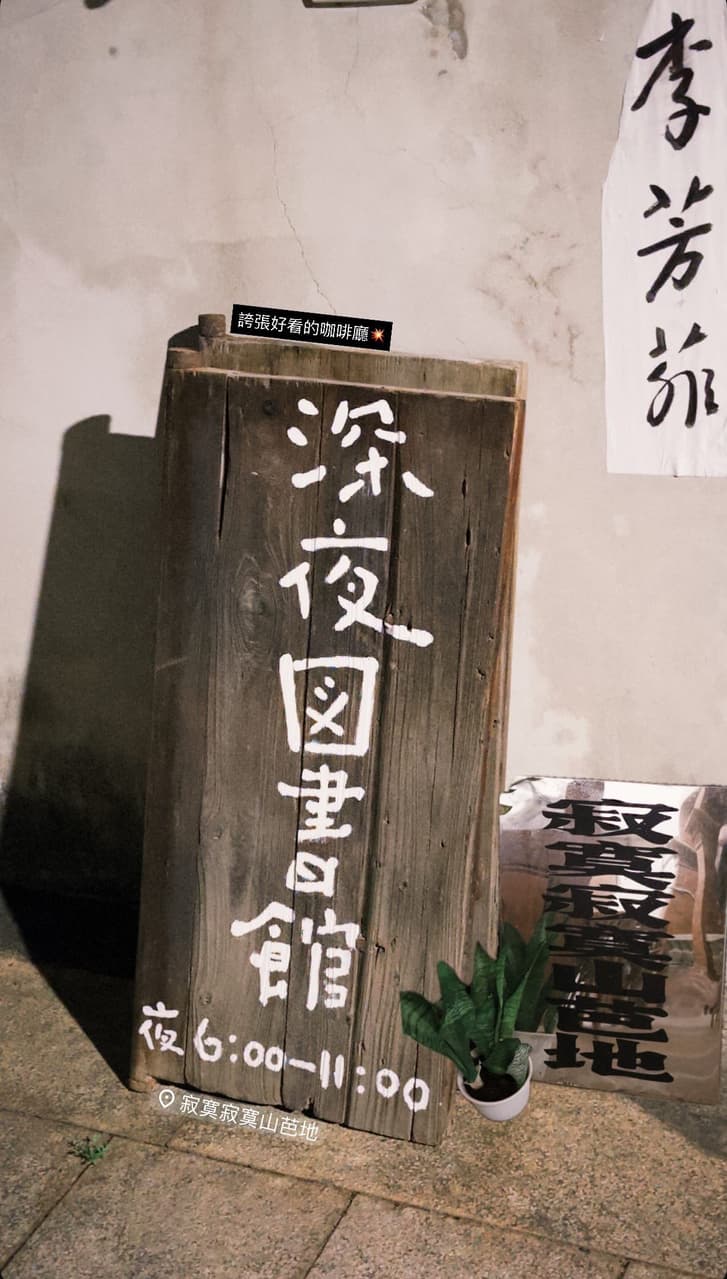 李芳菲
誇張好看的咖啡廳💥
深夜図書館
夜6:00-11:00
寂寞寂寞山芭地
寂寞寂寞山芭地